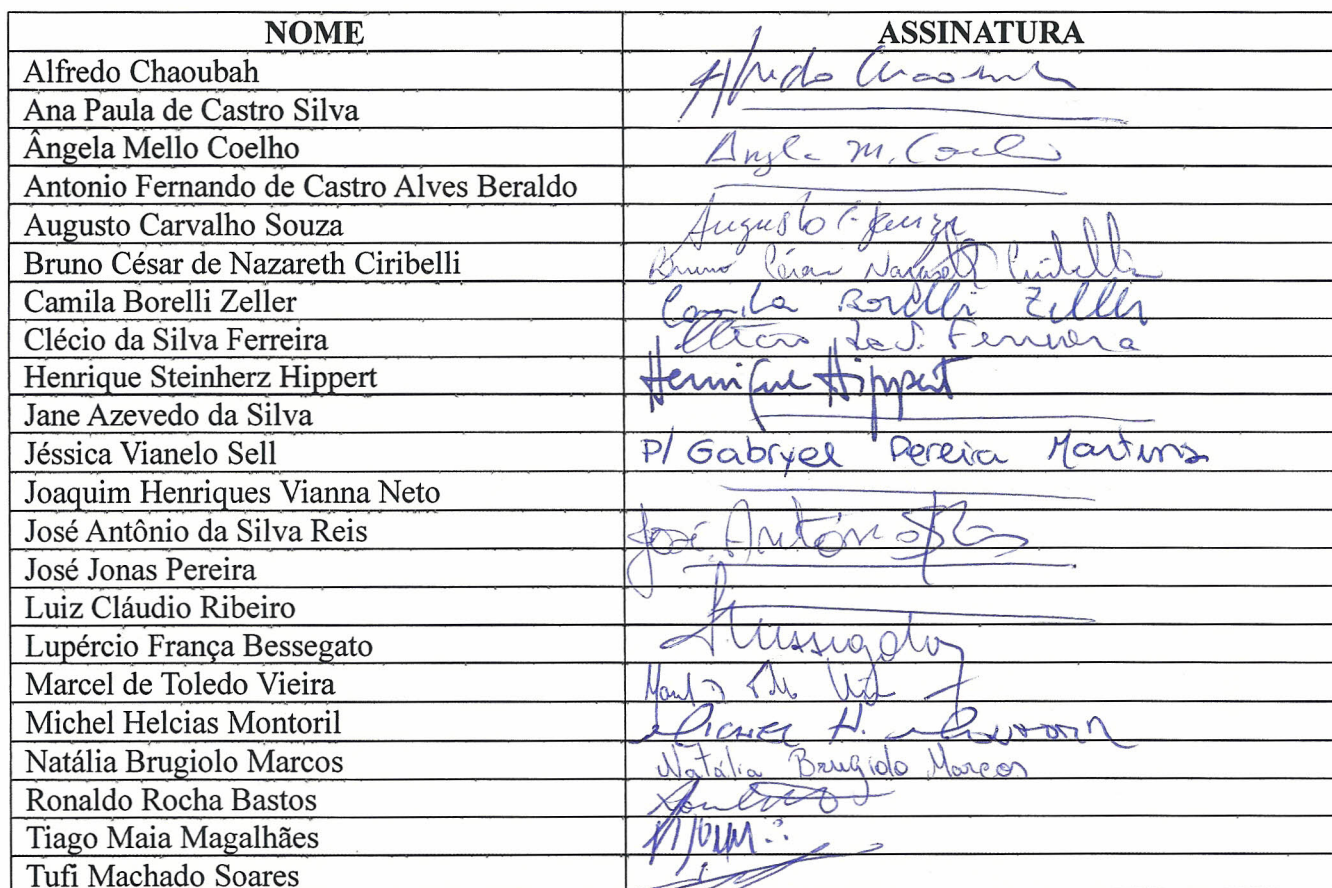 NOME ASSINATURA
Alfredo Chaoubah Alfredo Chaoubah
Ana Paula de Castro Silva
Ângela Mello Coelho Angela M. Coelho
Antonio Fernando de Castro Alves Beraldo
Augusto Carvalho Souza Augusto C. Souza
Bruno César de Nazareth Ciribelli Bruno César Nazareth Ciribelli
Camila Borelli Zeller Camila Borelli Zeller
Clécio da Silva Ferreira Clécio da S. Ferreira
Henrique Steinherz Hippert Henrique Hippert
Jane Azevedo da Silva
Jéssica Vianelo Sell P/ Gabryel Pereira Martins
Joaquim Henriques Vianna Neto
José Antônio da Silva Reis José Antônio
José Jonas Pereira
Luiz Cláudio Ribeiro
Lupércio França Bessegato
Marcel de Toledo Vieira
Michel Helcias Montoril Michel H. Montoril
Natália Brugiolo Marcos Natália Brugiolo Marcos
Ronaldo Rocha Bastos
Tiago Maia Magalhães
Tufi Machado Soares